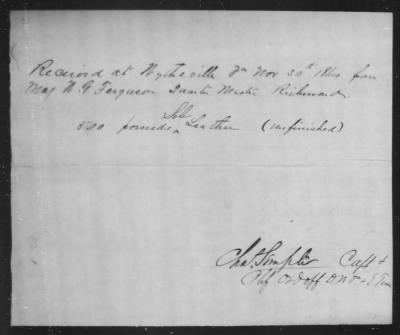 Received at Wytheville Va Nov 30th 1864 from
Maj W. G. Ferguson Quarter Master Richmond.
500 pounds Sole Leather (unfinished)
Chas Semple Capt &
Chf Ord off